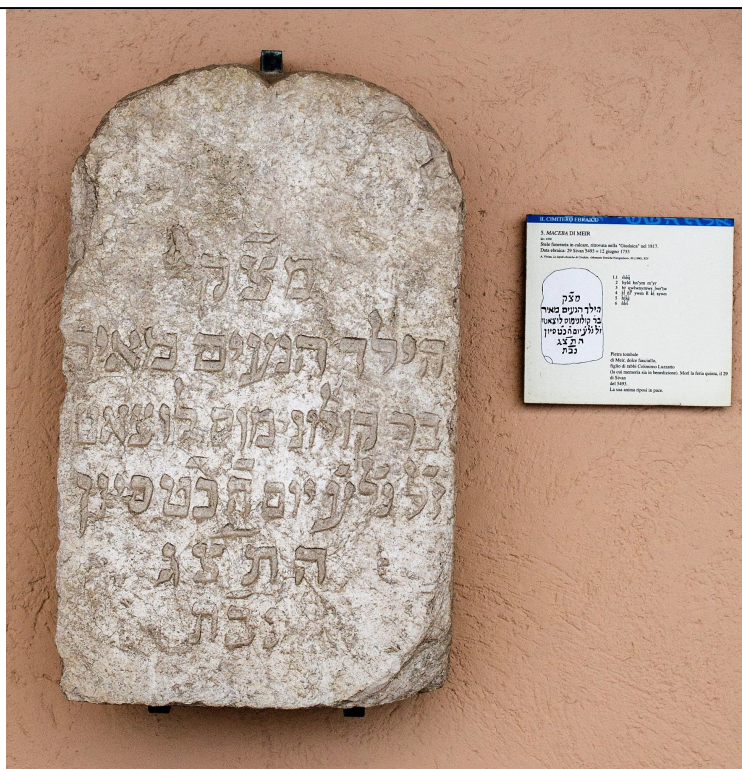 מצק
הילד הנעים מאיר
בר קולונימוס לוצאט
זל נלע יום ה כט סיון
התצג
נבת
IL CIMITERO EBRAICO
5. MACEBA DI MEIR
Stele funeraria in calcare, ritrovata nella "Giudaica" nel 1817.
Data ebraica: 29 Sivan 5493 = 12 giugno 1733
מצק
הילד הנעים מאיר
בר קולונימוס לוצאטו
זל נלע יום ה כט סיון
התצג
נבת
Pietra tombale
di Meir, dolce fanciullo,
figlio di rabbi Colonimo Luzzatto
Da cui memoria sia in benedizione). Morì la feria quinta, il 29
di Sivan
del 5493.
La sua anima riposi in pace.